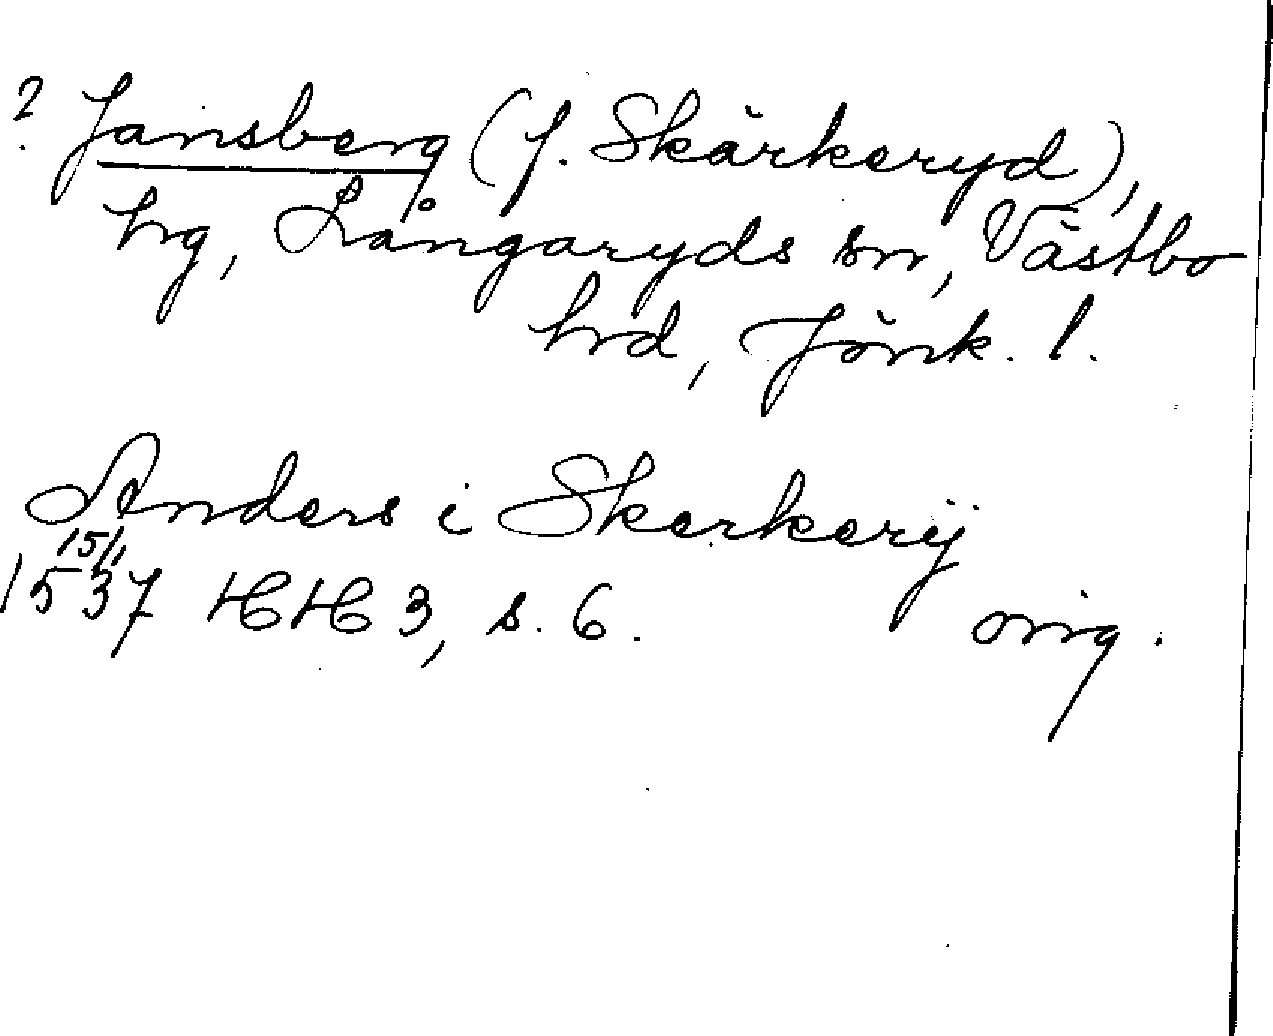 ? Jansberg (f. Skärkeryd),
hg, Långaryds sn, Västbo
hd, Jönk. l.
Anders i Skerkerÿ
15/1
1537 HH 3, s. 6. orig.